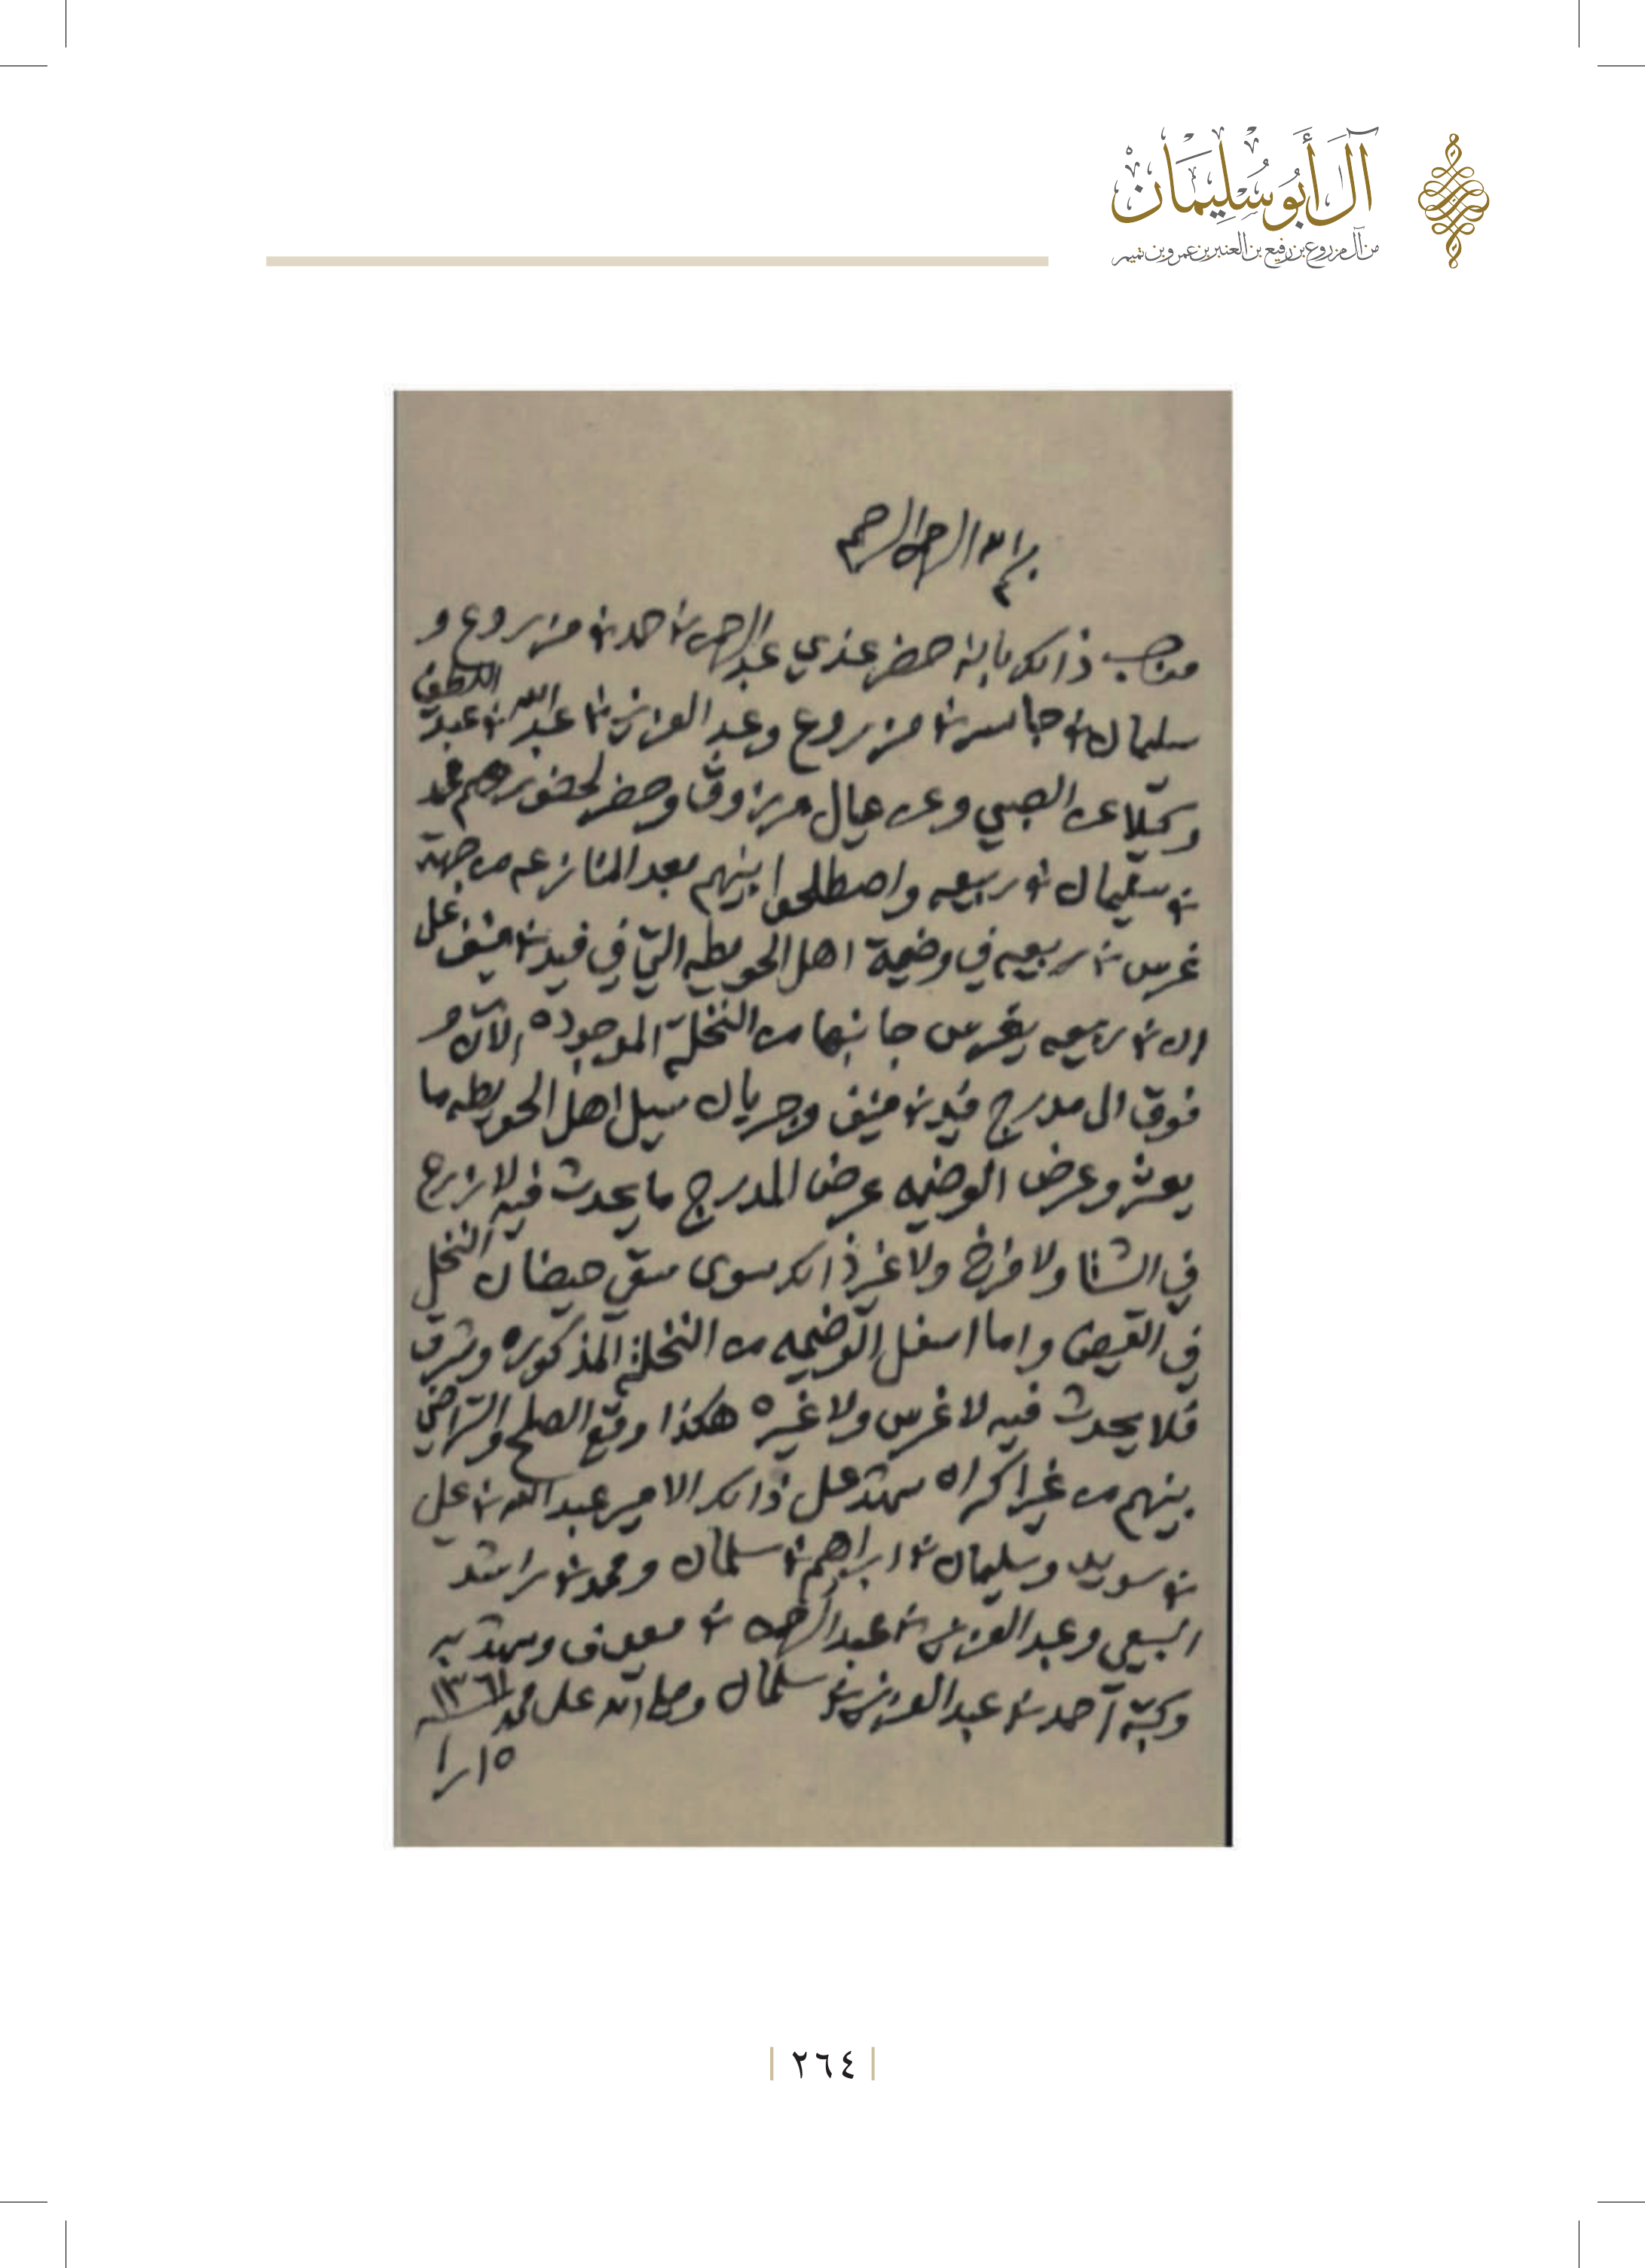 آل أبو سليمان
من آل مزروع بن رفيع بن العنبر بن عمرو بن تميم
بسم الله الرحمن الرحيم
موجب ذالك بانه حضر عندي عبدالرحمن بن حمد بن مزروع و
سليمان بن جاسر بن مزروع وعبد العزيز بن عبدالله بن عبد اللطيف
وكيلا عن الصبي وعن عيال مرزوق وحضر لحضورهم محمد
بن سليمان بن ربيعه واصطلحوا بينهم بعد المنازعه من جهة
غرس بن ربيعه في وضيمة اهل الحويطه التي في فيد بن منيف على
ان بن ربيعه يغرس جانبها من النخلة الموجوده الآن و
فوق الى مدرج فيد بن منيف وجريان سيل اهل الحويطه ما
يعثر وعرض الوضيمه عرض المدرج ما يحدث فيه لا زرع
في الشتا ولا فرخ ولا غير ذالك سوى سقي حيضان النخل
في القيض واما اسفل الوضيمه من النخلة المذكوره وشرق
فلا يحدث فيه لا غرس ولا غيره هكذا وقع الصلح والتراضي
بينهم من غير اكراه شهد على ذالك الامير عبدالله بن علي
بن سويد وسليمان بن ابراهيم بن سلمان ومحمد بن راشد
السبيعي وعبد العزيز بن عبدالرحمن بن معيوف وشهد به
وكتبه احمد بن عبد العزيز بن سلمان وصلى الله على محمد
١٥ را
٢٦٤